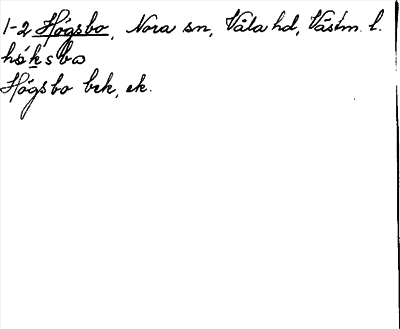 1-2 Högsbo, Nora sn, Våla hd, Västm. l.
hǿksbω
Högsbo bek, ek.